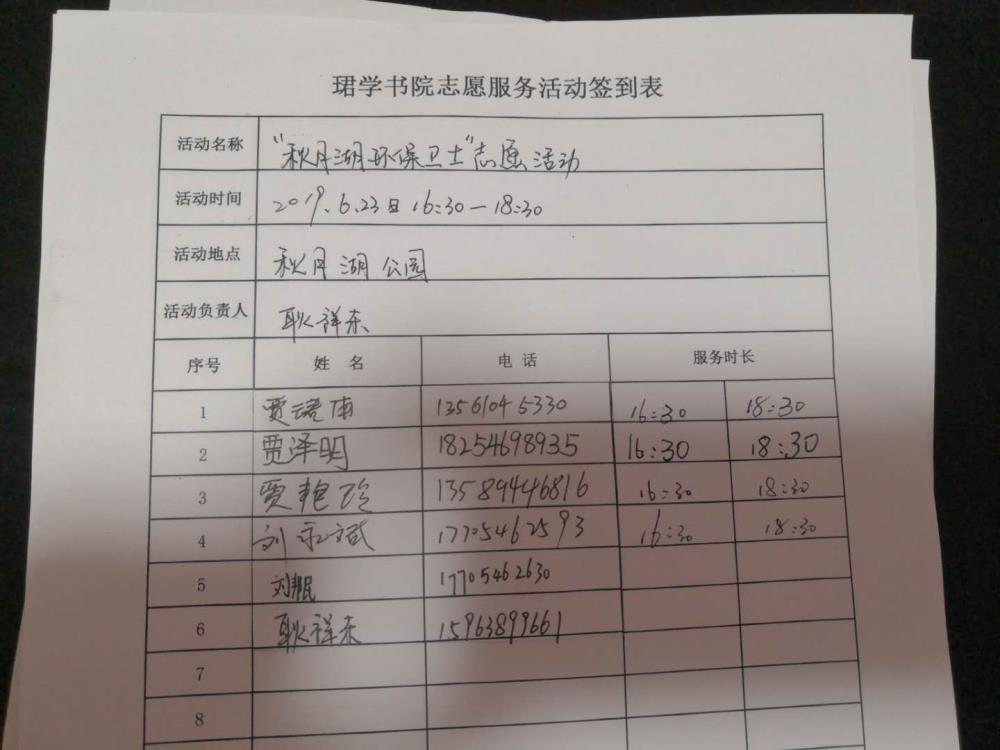 珺学书院志愿服务活动签到表
活动名称 "秋月湖环保卫士"志愿活动
活动时间 2019.6.23日 16:30—18:30
活动地点 秋月湖公园
活动负责人 耿祥东
序号 姓名 电话 服务时长
1 贾 13561045330 16:30 18:30
2 贾泽明 18254698935 16:30 18:30
3 贾艳玲 13589446816 16:30 18:30
4 刘永斌 17705462593 16:30 18:30
5 刘 17705462630
6 耿祥东 15963899661
7
8